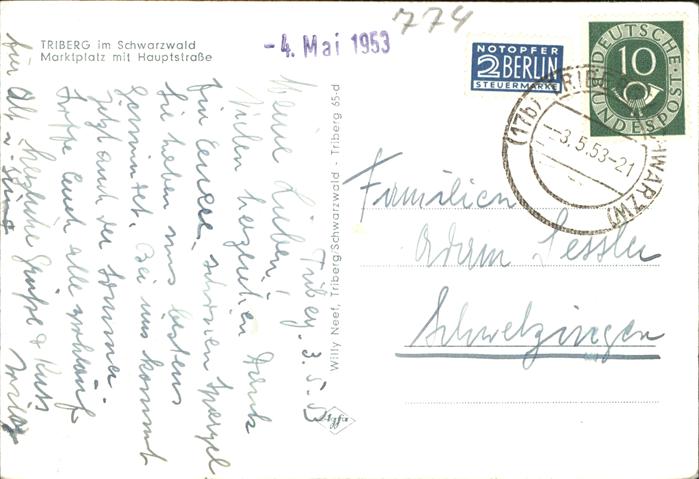 774
TRIBERG im Schwarzwald
Marktplatz mit Hauptstraße
-4. Mai 1953
NOTOPFER
2 BERLIN
STEUERMARKE
DEUTSCHE
10
BUNDESPOST
(17b) TRIBERG (SCHWARZW)
-3.5.53-21
Triberg, 3.5.53
Meine Lieben!
Vielen herzlichen Dank
für Eure schönen Spargel
Sie haben uns bestens
Bei uns kommt
jetzt auch der Sommer.
Hoffe Euch alle wohlauf
herzliche Grüße & Kuss
Willy Neef, Triberg/Schwarzwald - Triberg 65-d
Familien
Adam Sessler
Schwetzingen